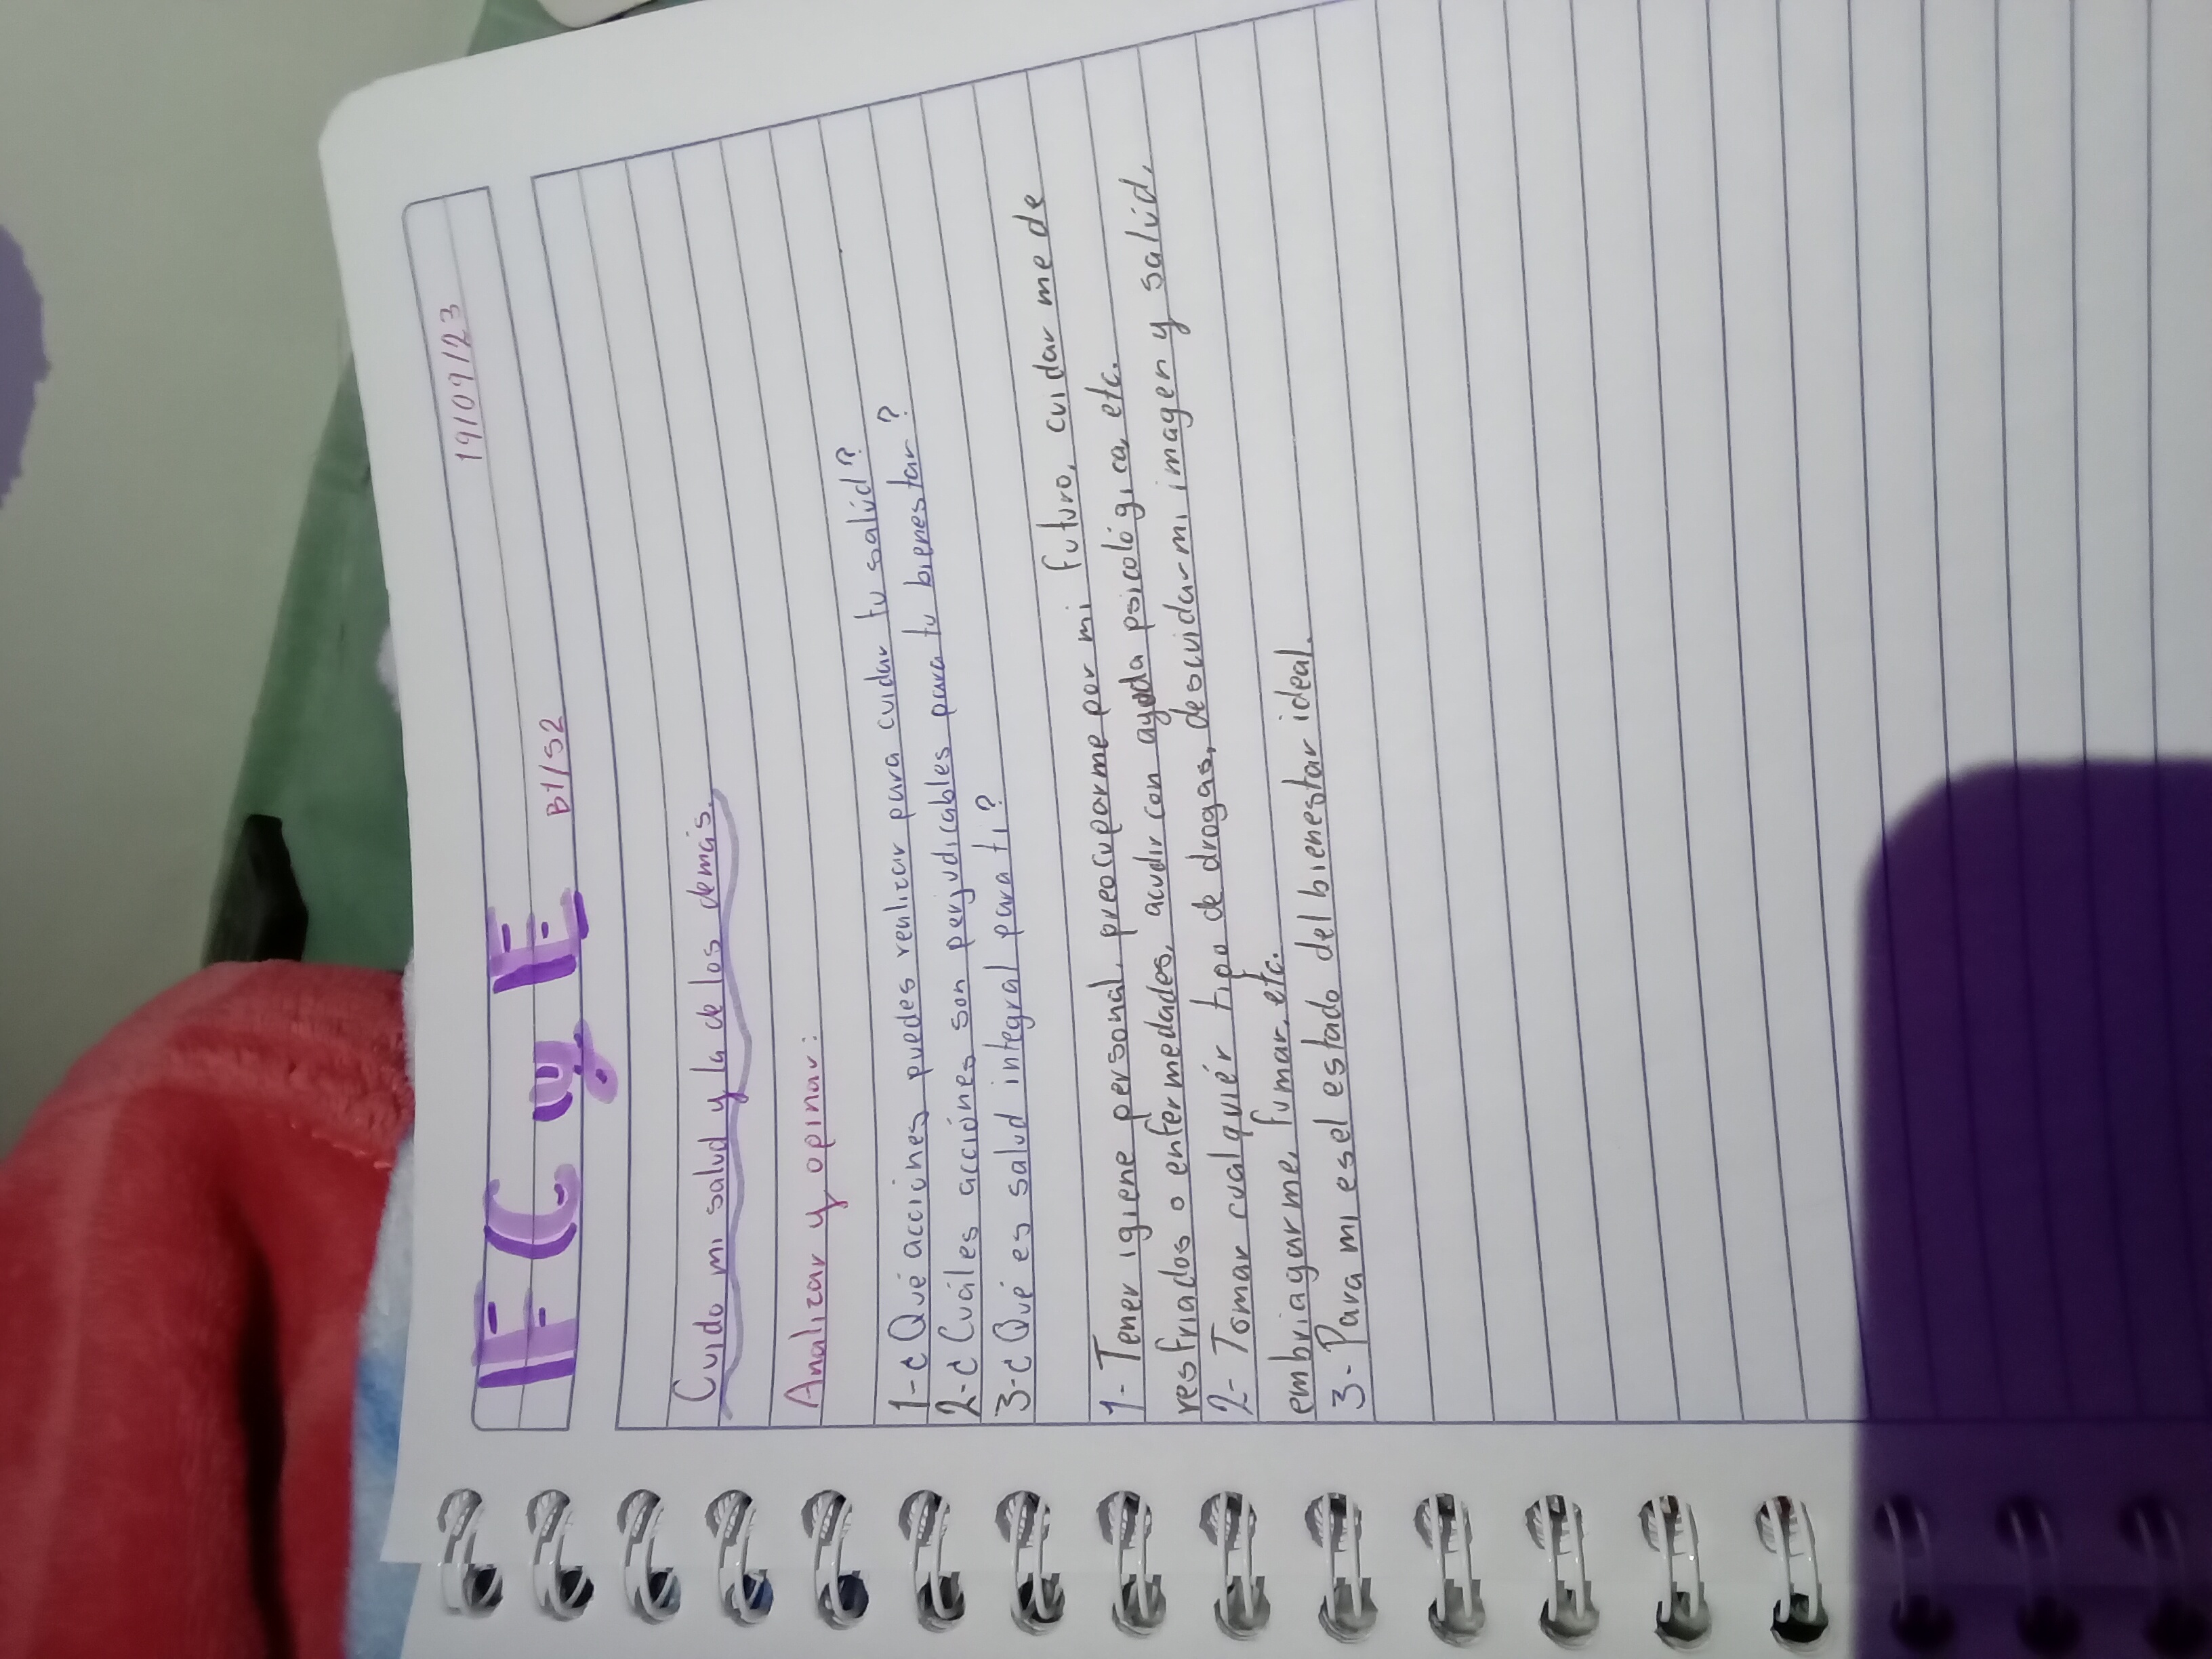 19/09/23
FC y E B1/S2
Cuido mi salud y la de los demás.
Analizar y opinar:
1-¿Qué acciones puedes realizar para cuidar tu salúd?
2-¿Cuáles acciónes son perjudicables para tu bienestar?
3-¿Qué es salud integral para ti?
1- Tener igiene personal, preocuparme por mi futuro, cuidar me de
resfriados o enfermedades, acudir con ayuda psicológica, etc.
2- Tomar cualquiér tipo de drogas, descuidar mi imagen y salúd,
embriagarme, fumar, etc.
3- Para mi es el estado del bienestar ideal.